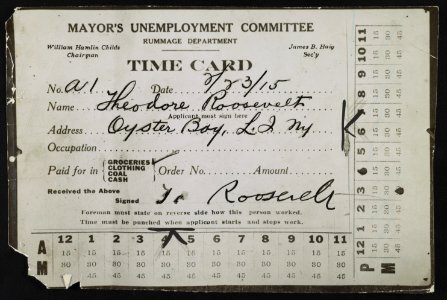 MAYOR'S UNEMPLOYMENT COMMITTEE
RUMMAGE DEPARTMENT
William Hamlin Childs
Chairman
James B. Haig
Sec'y
TIME CARD
No. A1 Date 2/23/15
Name Theodore Roosevelt
Applicant must sign here
Address Oyster Bay, L.I. Ny
Occupation
Paid for in GROCERIES CLOTHING COAL CASH Order No. Amount
Received the Above
Signed T. Roosevelt
Foreman must state on reverse side how this person worked.
Time must be punched when applicant starts and stops work.
AM
12 1 2 3 4 5 6 7 8 9 10 11
15 15 15 15 15 15 15 15 15 15 15 15
30 30 30 30 30 30 30 30 30 30 30 30
45 45 45 45 45 45 45 45 45 45 45 45
PM
12 1 2 3 5 6 7 8 9 10 11
15 30 45